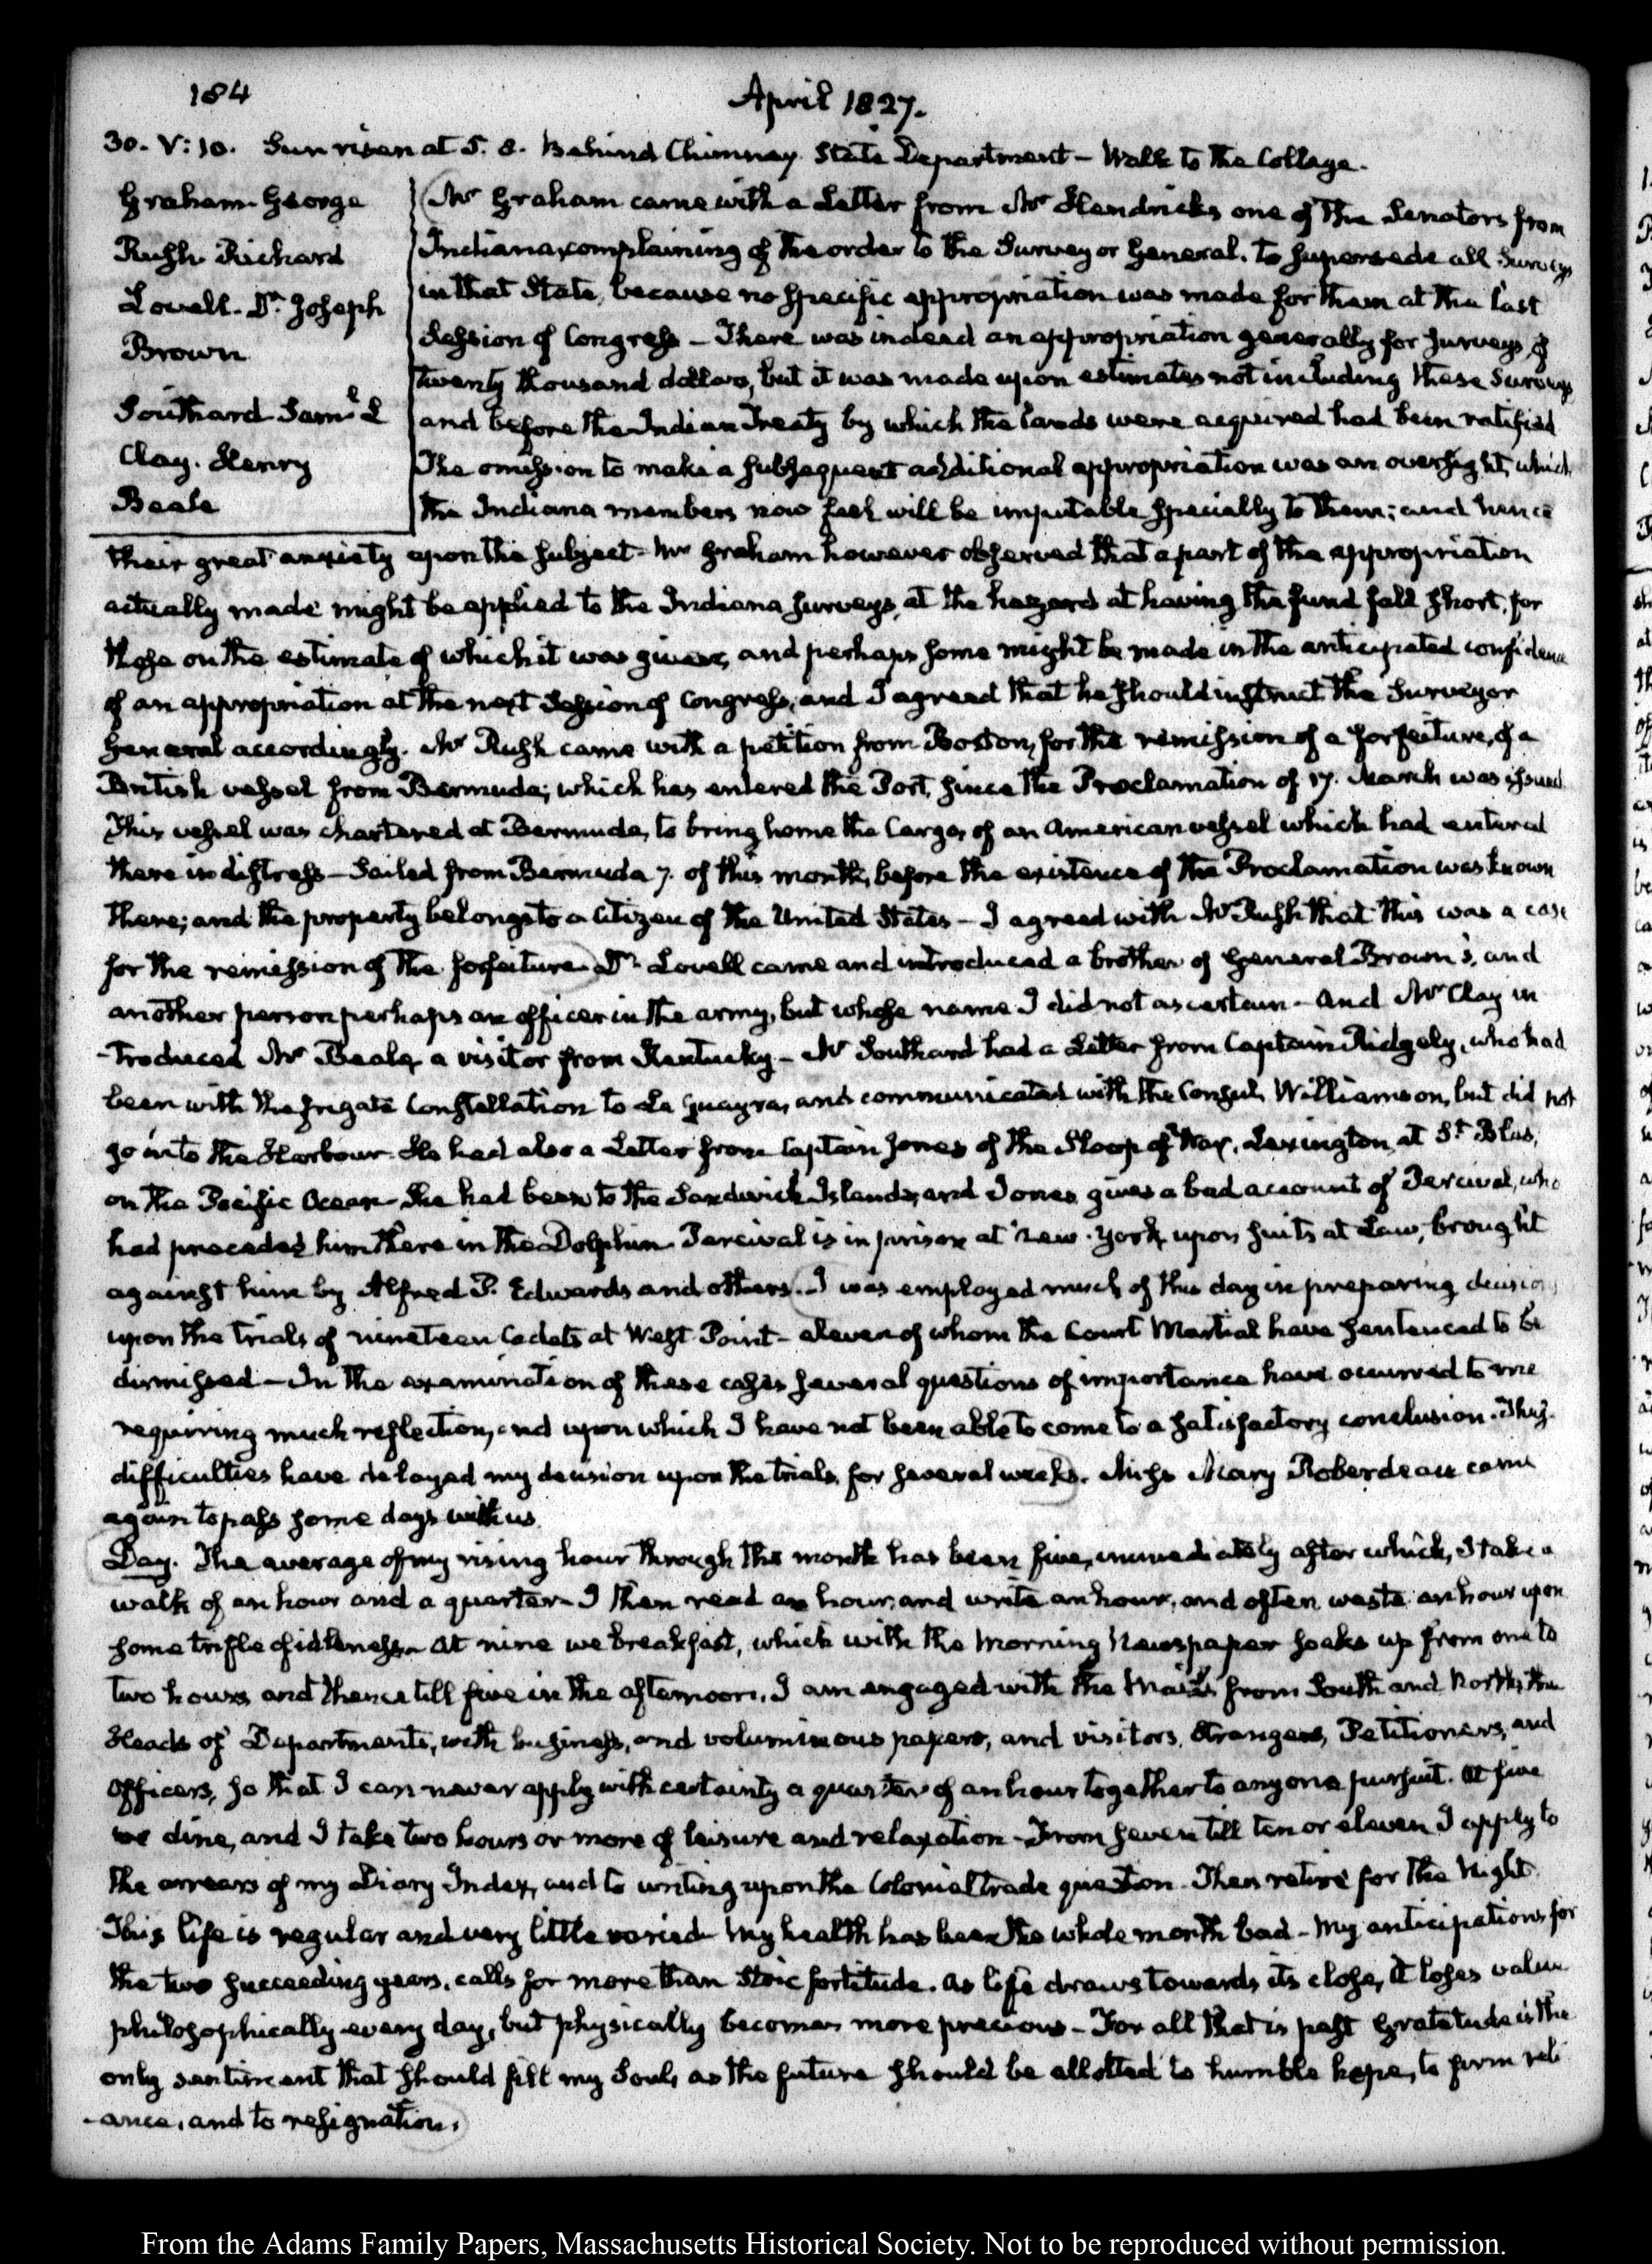 184
April 1827.
30. V:10. Sun risen at 5. 8. Behind Chimney State Department – Walk to the College.
Graham. George
Rush Richard
Lovell. Dr. Joseph
Brown
Southard Saml. L
Clay. Henry
Beale
Mr Graham came with a Letter from Mr Hendricks one of the Senators from
Indiana, complaining of the order to the Surveyor General, to supersede all Surveys
in that State, because no specific appropriation was made for them at the last
Session of Congress – There was indeed an appropriation generally for surveys of
twenty thousand dollars, but it was made upon estimates not including these Surveys
and before the Indian Treaty by which the lands were acquired had been ratified
The omission to make a subsequent additional appropriation was an oversight, which
the Indiana members now feel will be imputable specially to them; and hence
their great anxiety upon the subject – Mr Graham however observed that a part of the appropriation
actually made might be applied to the Indiana surveys, at the hazard at having the fund fall short, for
those on the estimate of which it was given, and perhaps some might be made in the anticipated confidence
of an appropriation at the next Session of Congress, and I agreed that he should instruct the Surveyor
General accordingly. Mr Rush came with a petition from Boston, for the remission of a forfeiture, of a
British vessel from Bermuda; which has entered the Port, since the Proclamation of 17. March was issued
This vessel was chartered at Bermuda, to bring home the Cargo, of an American vessel which had entered
there in distress – Sailed from Bermuda 7. of this month, before the existence of the Proclamation was known
there; and the property belongs to a Citizen of the United States – I agreed with Mr Rush that this was a case
for the remission of the forfeiture – Dr. Lovell came and introduced a brother of General Brown's, and
another person perhaps an officer in the army, but whose name I did not ascertain – And Mr Clay in
-troduced Mr Beale, a visitor from Kentucky – Mr Southard had a Letter from Captain Ridgely, who had
been with the frigate Constellation to La Guayra, and communicated with the Consul, Williamson, but did not
go into the Harbour. He had also a Letter from Captain Jones of the Sloop of War, Lexington, at St. Blas,
on the Pacific Ocean – She had been to the Sandwich Islands, and Jones gives a bad account of Percival, who
had preceded him there in the Dolphin – Percival is in prison at New-York, upon suits at Law, brought
against him by Alfred P. Edwards and others. I was employed much of this day in preparing decisions
upon the trials of nineteen Cadets at West Point – eleven of whom the Court Martial have sentenced to be
dismissed – In the examination of these cases several questions of importance have occurred to me
requiring much reflection, and upon which I have not been able to come to a satisfactory conclusion. These
difficulties have delayed my decision upon the trials, for several weeks. Miss Mary Roberdeau came
again to pass some days with us
Day. The average of my rising hour through the month has been five, immediately after which, I take a
walk of an hour and a quarter – I then read an hour, and write an hour, and often waste an hour upon
some trifle of idleness – At nine we breakfast, which with the Morning Newspaper soaks up from one to
two hours and thence till five in the afternoon, I am engaged with the Mails from South and North, the
Heads of Departments, with business, and voluminous papers, and visitors, Strangers, Petitioners, and
Officers, so that I can never apply with certainty a quarter of an hour together to any one pursuit. At five
we dine, and I take two hours or more of leisure and relaxation – From seven till ten or eleven I apply to
the arrears of my Diary Index, and to writing upon the Colonial trade question. Then retire for the Night.
This life is regular and very little varied – My health has been the whole month bad – My anticipations for
the two succeeding years, calls for more than Stoic fortitude. As life draws towards its close, it loses value
philosophically every day, but physically becomes more precious – For all that is past Gratitude is the
only sentiment that should fill my Soul, as the future should be allotted to humble hope, to firm reli
-ance, and to resignation.
From the Adams Family Papers, Massachusetts Historical Society. Not to be reproduced without permission.